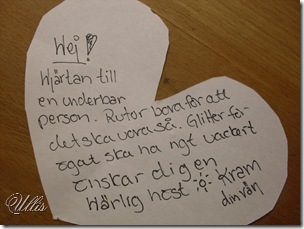 Hej!
Hjärtan till
en underbar
person. Rutor bara för att
det ska vara så. Glitter för
ögat ska ha ngt vackert
Önskar dig en
Härlig höst Kram
din vän
Ullis